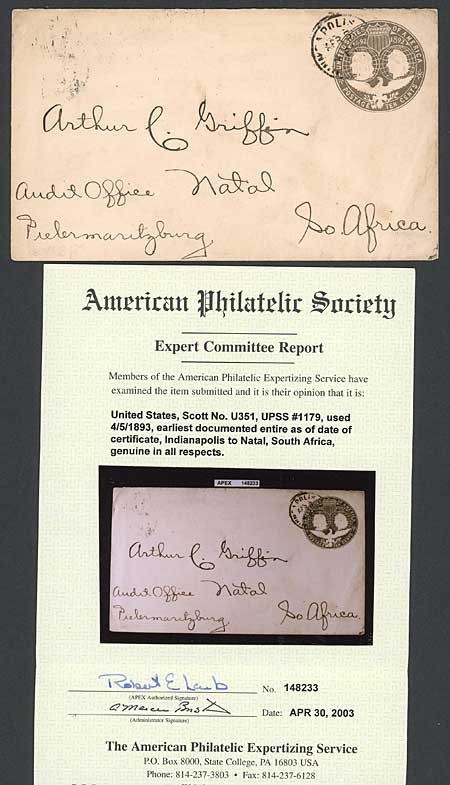 APOLIS
UNITED STATES OF AMERICA
1492 1892
POSTAGE TEN CENTS
Arthur C. Griffin
Audit Office Natal
Pietermaritzburg
So. Africa.
American Philatelic Society
Expert Committee Report
Members of the American Philatelic Expertizing Service have
examined the item submitted and it is their opinion that it is:
United States, Scott No. U351, UPSS #1179, used
4/5/1893, earliest documented entire as of date of
certificate, Indianapolis to Natal, South Africa,
genuine in all respects.
APEX 148233
Arthur C. Griffin
Audit Office Natal
Pietermaritzburg
So Africa.
Robert E Lamb
No. 148233
(APEX Authorized Signature)
Date: APR 30, 2003
(Administrator Signature)
The American Philatelic Expertizing Service
P.O. Box 8000, State College, PA 16803 USA
Phone: 814-237-3803 • Fax: 814-237-6128